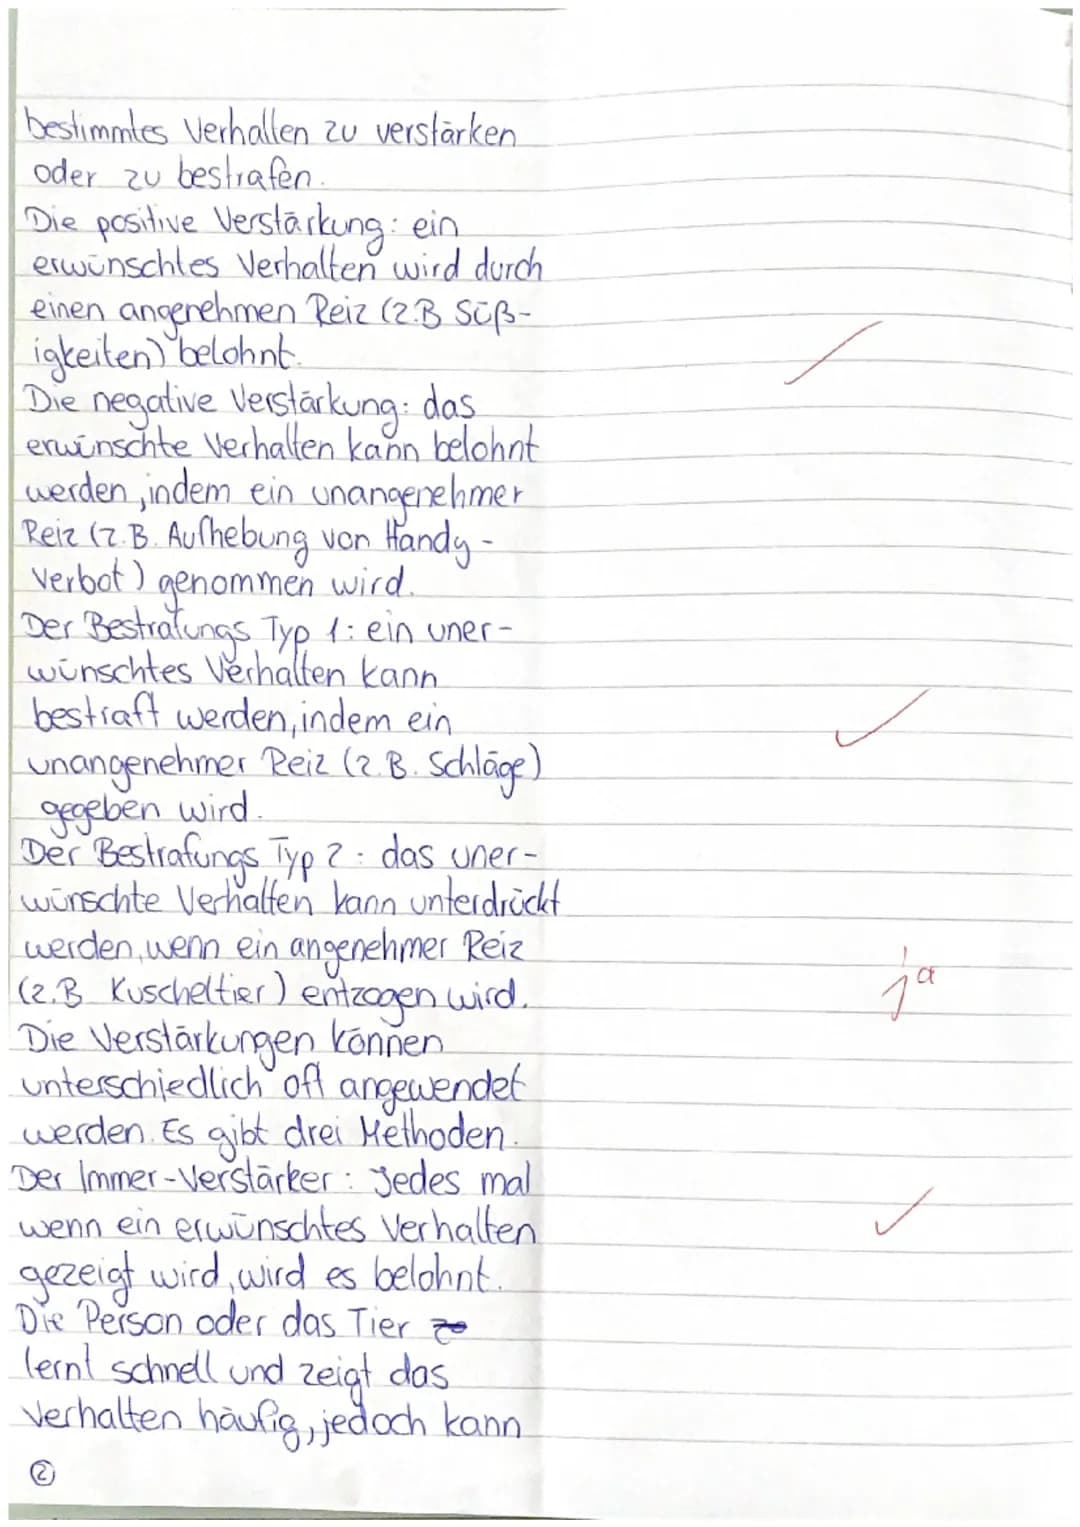 bestimmtes Verhalten zu verstärken
oder zu bestrafen.
Die positive Verstärkung: ein
erwünschtes Verhalten wird durch
einen angenehmen Reiz (z.B Süß-
igkeiten) belohnt.
Die negative Verstärkung: das
erwünschte Verhalten kann belohnt
werden, indem ein unangenehmer
Reiz (z.B. Aufhebung von Handy-
Verbot) genommen wird.
Der Bestrafungs Typ 1: ein uner-
wünschtes Verhalten kann
bestraft werden, indem ein
unangenehmer Reiz (z.B. Schläge)
gegeben wird.
Der Bestrafungs Typ 2: das uner-
wünschte Verhalten kann unterdrückt
werden, wenn ein angenehmer Reiz
(z.B Kuscheltier) entzogen wird.
ja
Die Verstärkungen können
unterschiedlich oft angewendet
werden. Es gibt drei Methoden.
Der Immer-Verstärker: Jedes mal
wenn ein erwünschtes Verhalten
gezeigt wird, wird es belohnt.
Die Person oder das Tier
lernt schnell und zeigt das
Verhalten häufig, jedoch kann
2